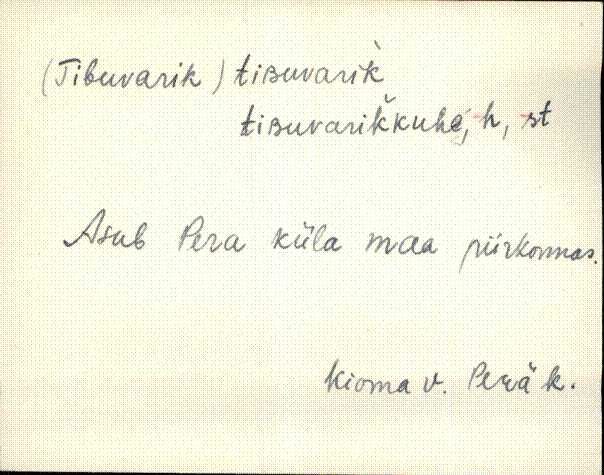 (Tibuvarik) tiʙuvarik̀
tiʙuvarik̆kuhe, h, st
Asub Pera küla maa piirkonnas.
Kioma v. Perä k.